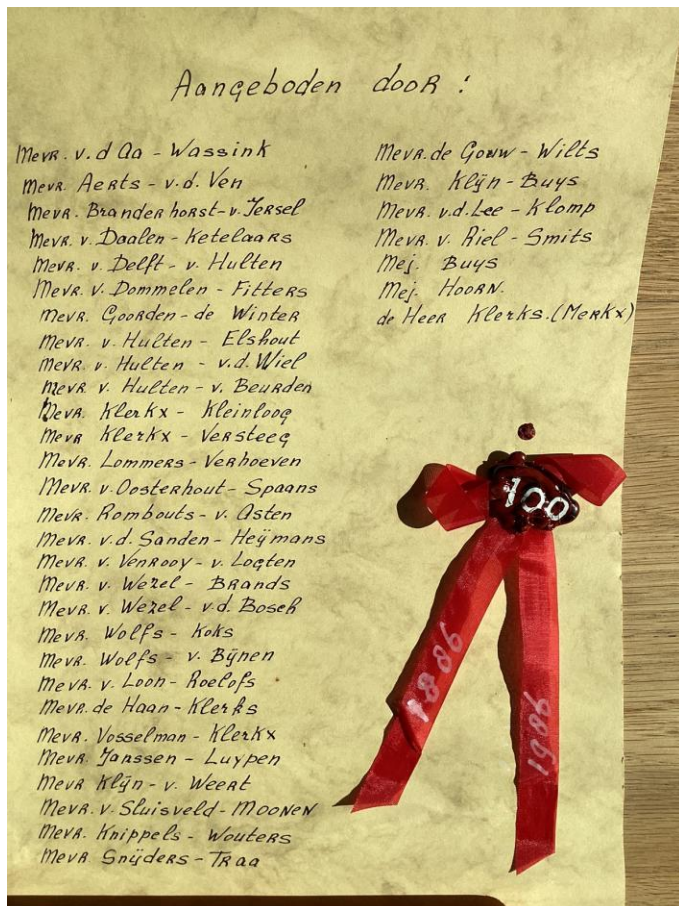 Aangeboden door :
Mevr. v.d Aa - Wassink
Mevr. Aerts - v.d. Ven
Mevr. Branderhorst - v. Iersel
Mevr. v. Daalen - Ketelaars
Mevr. v. Delft - v. Hulten
Mevr. v. Dommelen - Fitters
Mevr. Goorden - de Winter
Mevr. v. Hulten - Elshout
Mevr. v. Hulten - v.d. Wiel
Mevr. v. Hulten - v. Beurden
Mevr. Klerkx - Kleinloog
Mevr Klerkx - Versteeg
Mevr. Lommers - Verhoeven
Mevr. v. Oosterhout - Spaans
Mevr. Rombouts - v. Asten
Mevr. v.d. Sanden - Heÿmans
Mevr. v. Venrooy - v. Logten
Mevr. v. Wezel - Brands
Mevr. v. Wezel - v.d. Bosch
Mevr. Wolfs - Koks
Mevr. Wolfs - v. Bÿnen
Mevr. v. Loon - Roelofs
Mevr. de Haan - Klerks
Mevr. Vosselman - Klerkx
Mevr. Janssen - Luypen
Mevr Klÿn - v. Weert
Mevr. v. Sluisveld - Moonen
Mevr. Knippels - Wouters
Mevr Snÿders - Traa
Mevr. de Gouw - Wilts
Mevr. Klÿn - Buys
Mevr. v.d. Lee - Klomp
Mevr. v. Riel - Smits
Mej. Buys
Mej. Hoorn.
de Heer Klerks. (Merkx)
100
1886
1986